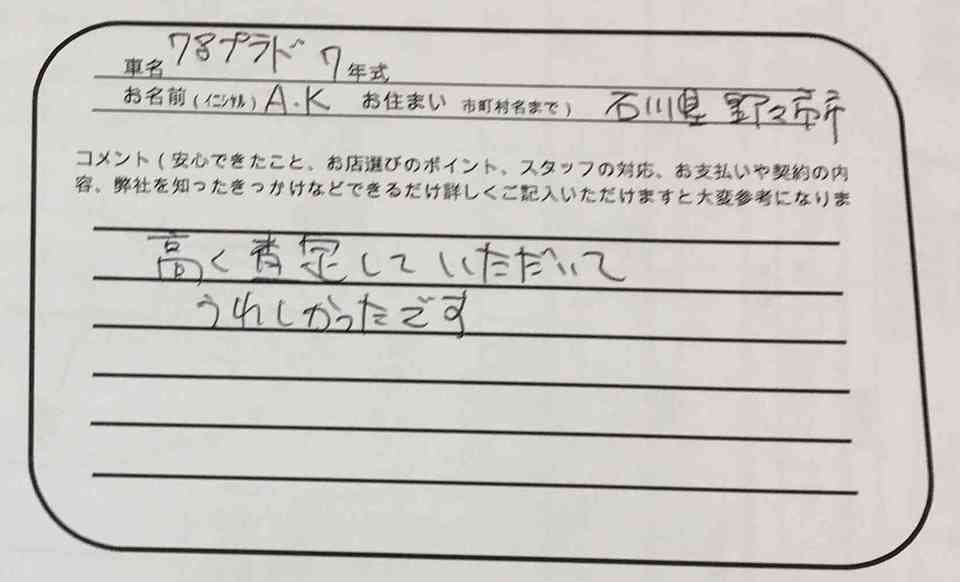 車名 78プラド 7年式
お名前(イニシャル) A.K お住まい 市町村名まで) 石川県 野々市市
コメント(安心できたこと、お店選びのポイント、スタッフの対応、お支払いや契約の内
容、弊社を知ったきっかけなどできるだけ詳しくご記入いただけますと大変参考になりま
高く査定していただいて
うれしかったです